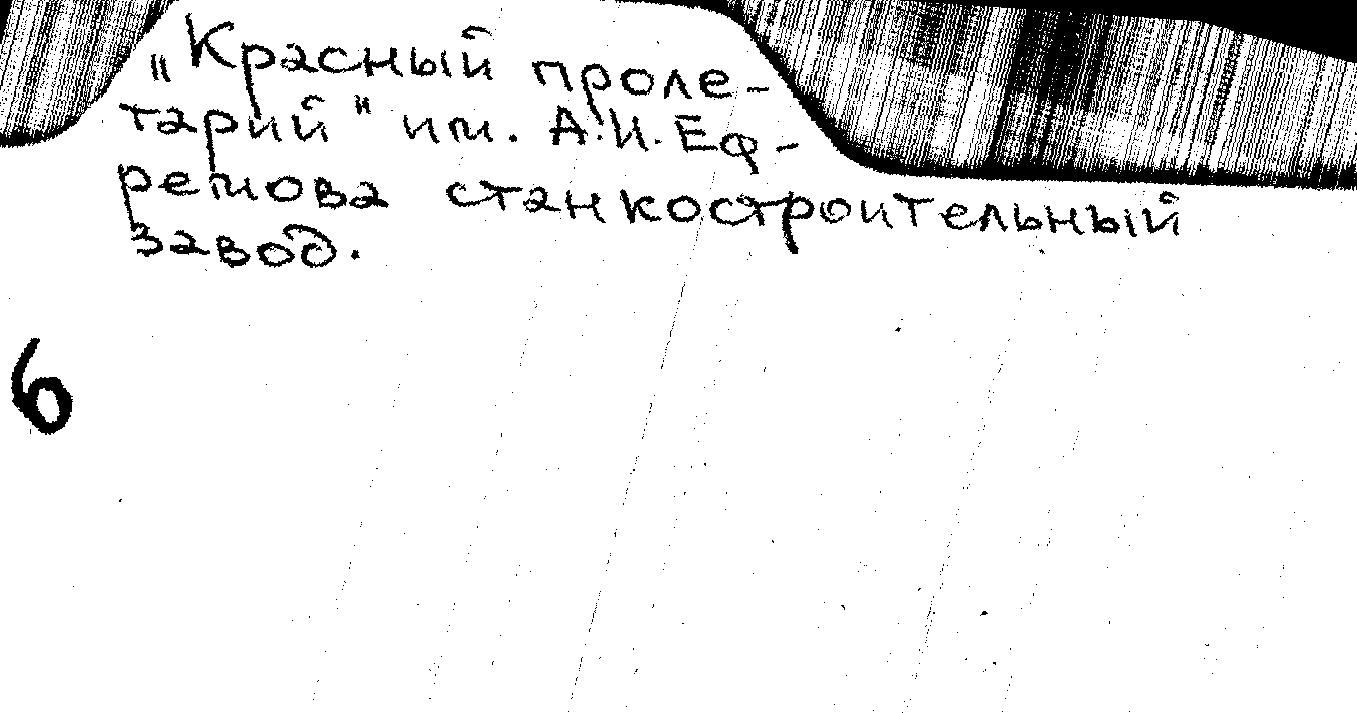 „Красный проле-
тарий" им. А.И. Еф-
ремова станкостроительный
завод.
6